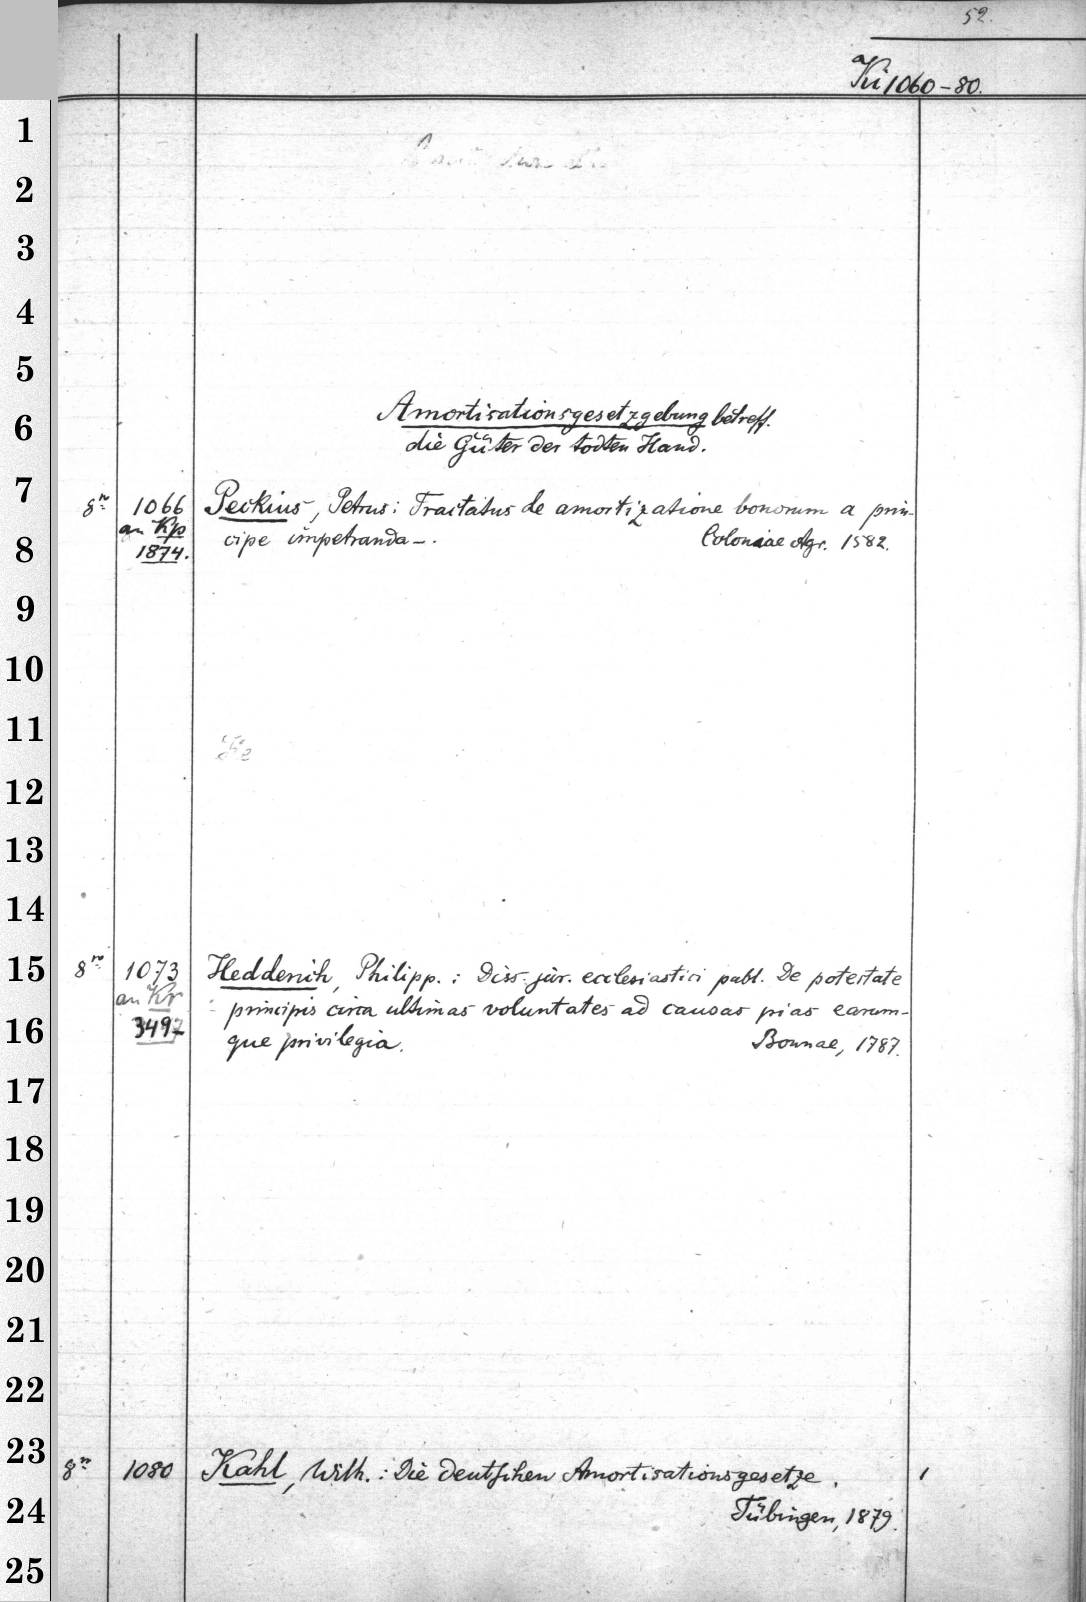 52.
Ki 1060-80.
1
2
3
4
5
Amortisationsgesetzgebung betreff.
6
die Güter der todten Hand.
7
8n. 1066 Peckius, Petrus: Tractatus de amortizatione bonorum a prin-
an Kp
8 cipe impetranda-. Coloniae Agr. 1582.
1874.
9
10
11
12
13
14
15 8vo. 1073 Hedderich, Philipp.: Diss. jur. ecclesiastici publ. De potestate
an Kr
principis circa ultimas voluntates ad causas pias earum-
16 3497 que privilegia. Bonnae, 1787.
17
18
19
20
21
22
23
8n. 1080 Kahl, Wilh.: Die deutschen Amortisationsgesetze. 1
24 Tübingen, 1879.
25